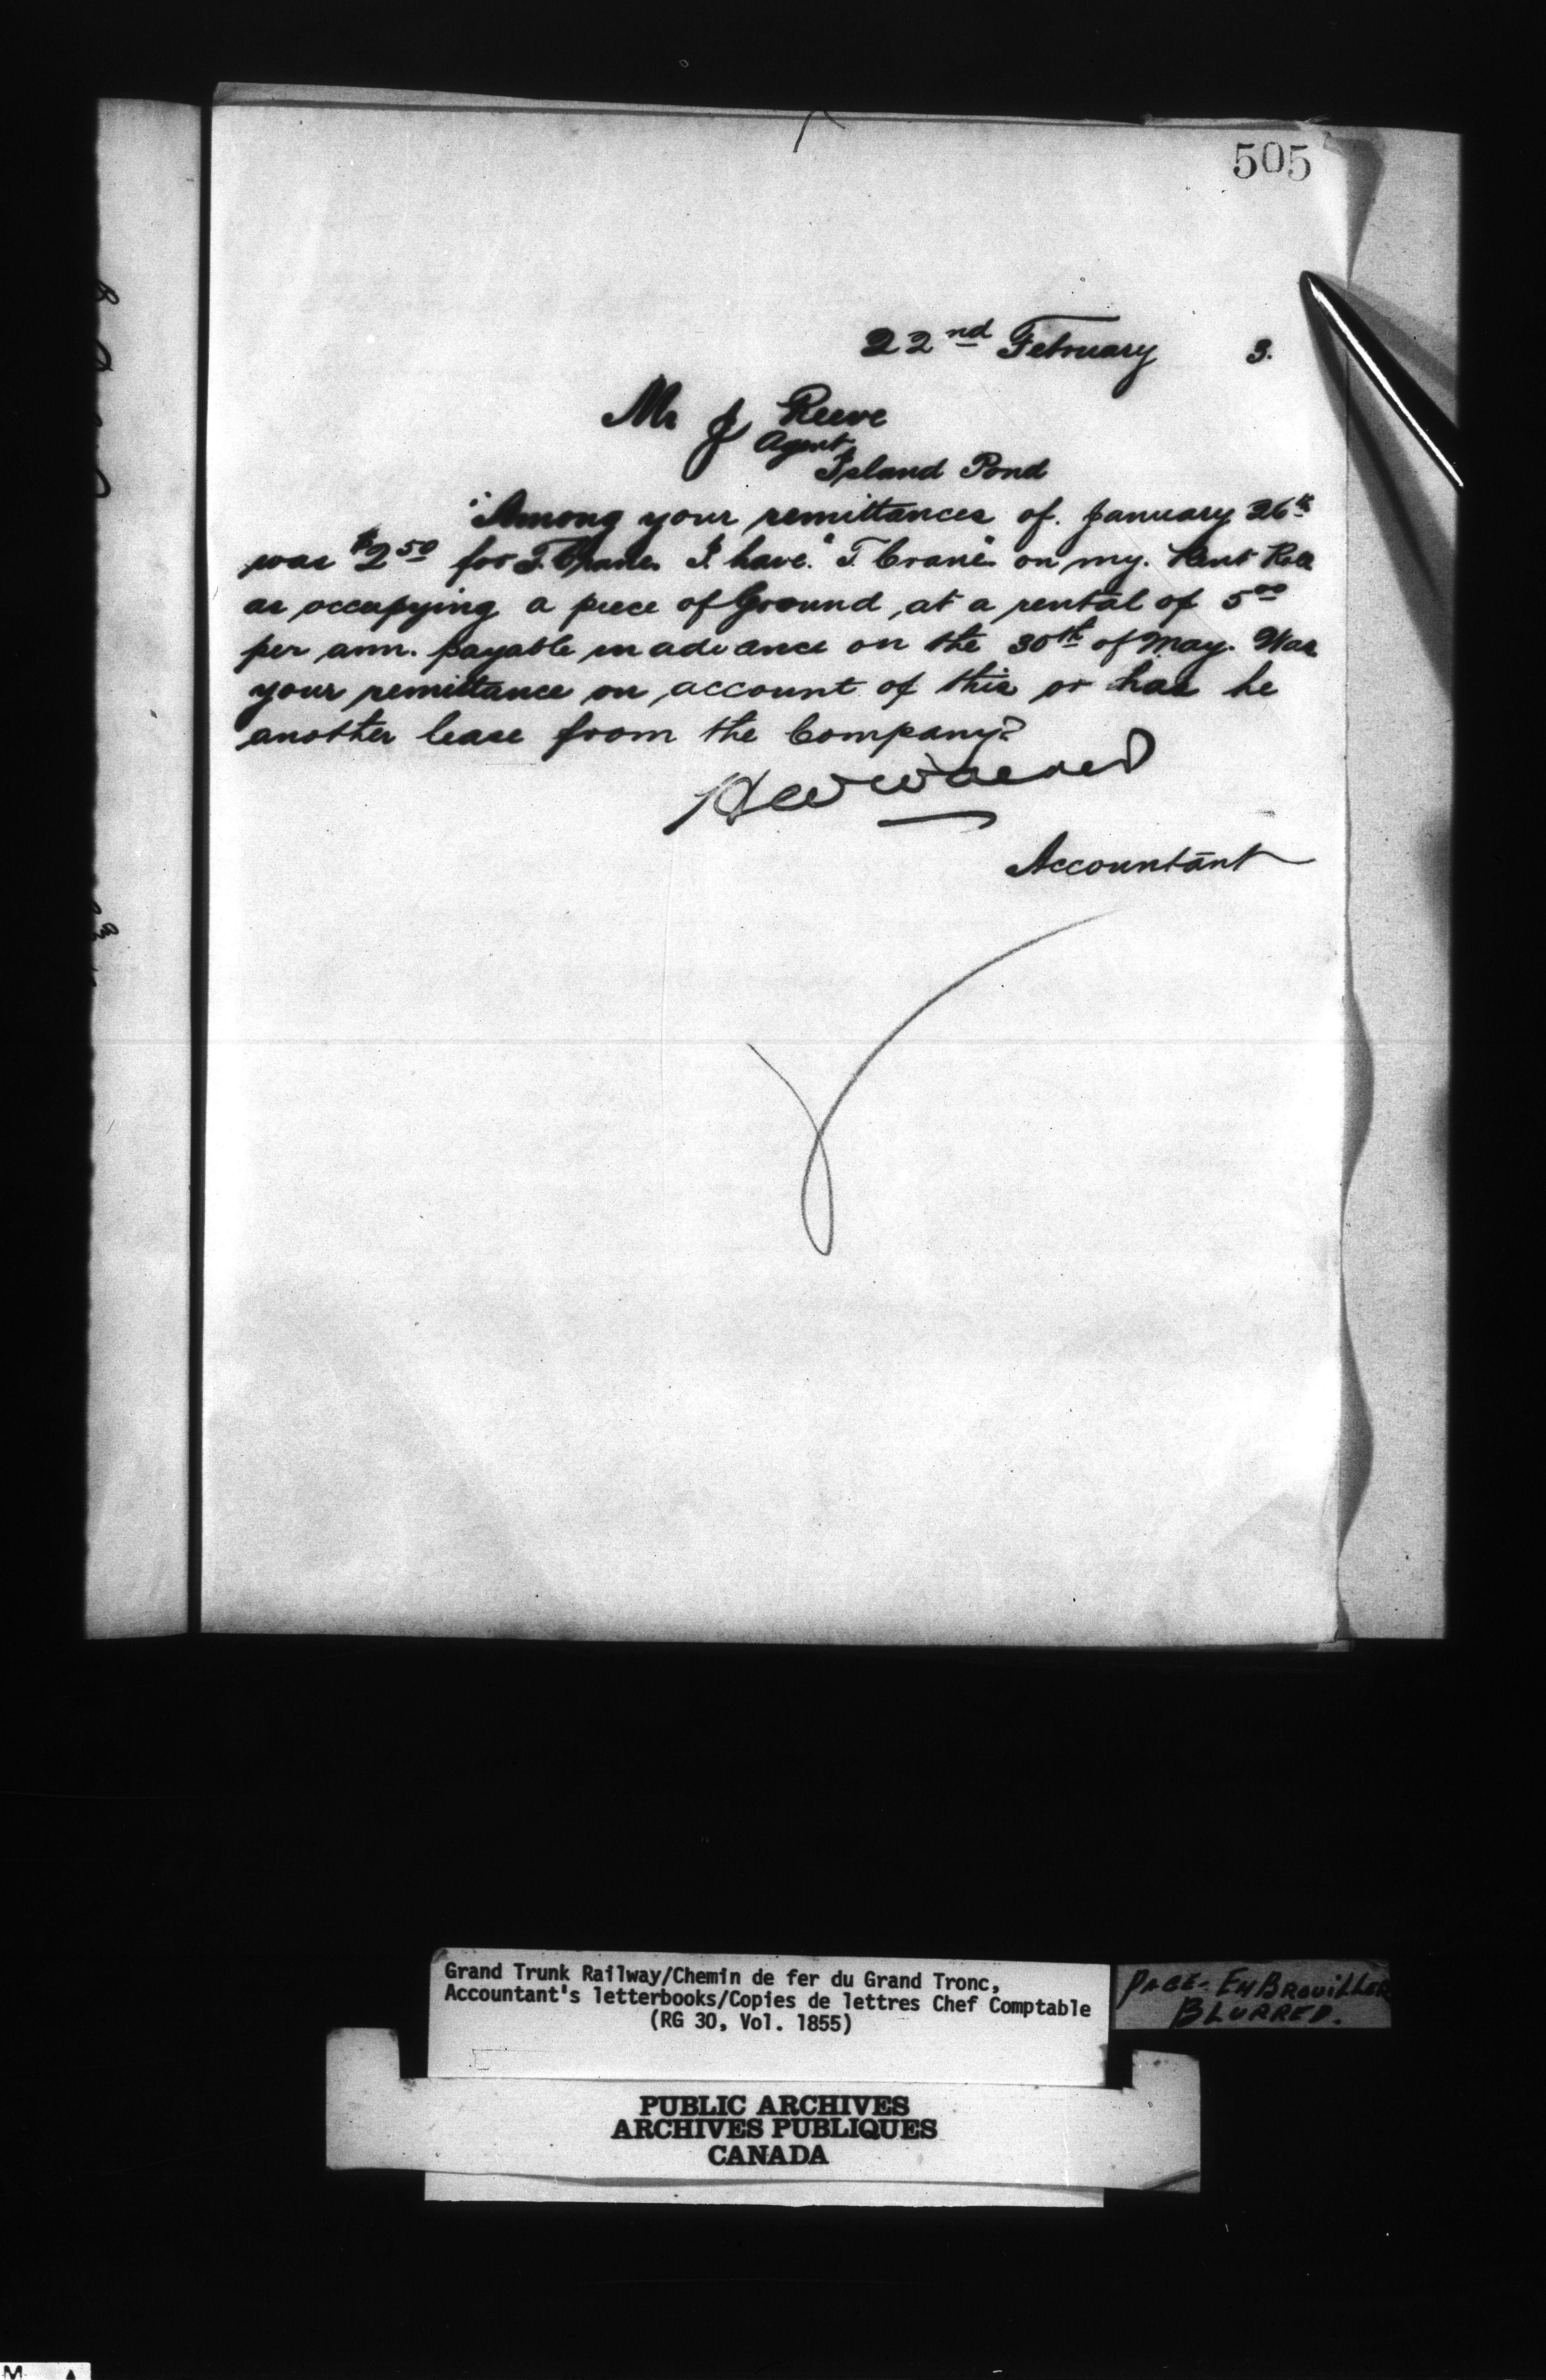 505
22nd February 3.
Mr J Reeve
Agent
Island Pond
Among your remittances of January 26th
was $2.50 for T. Crane. I have "T. Crane" on my Rent Roll
as occupying a piece of Ground, at a rental of 5.00
per ann. payable in advance on the 30th of May. Was
your remittance on account of this or has he
another lease from the Company?
Accountant
Grand Trunk Railway/Chemin de fer du Grand Tronc,
Accountant's letterbooks/Copies de lettres Chef Comptable
(RG 30, Vol. 1855)
PAGE- EMBROUILLER
BLURRED.
PUBLIC ARCHIVES
ARCHIVES PUBLIQUES
CANADA